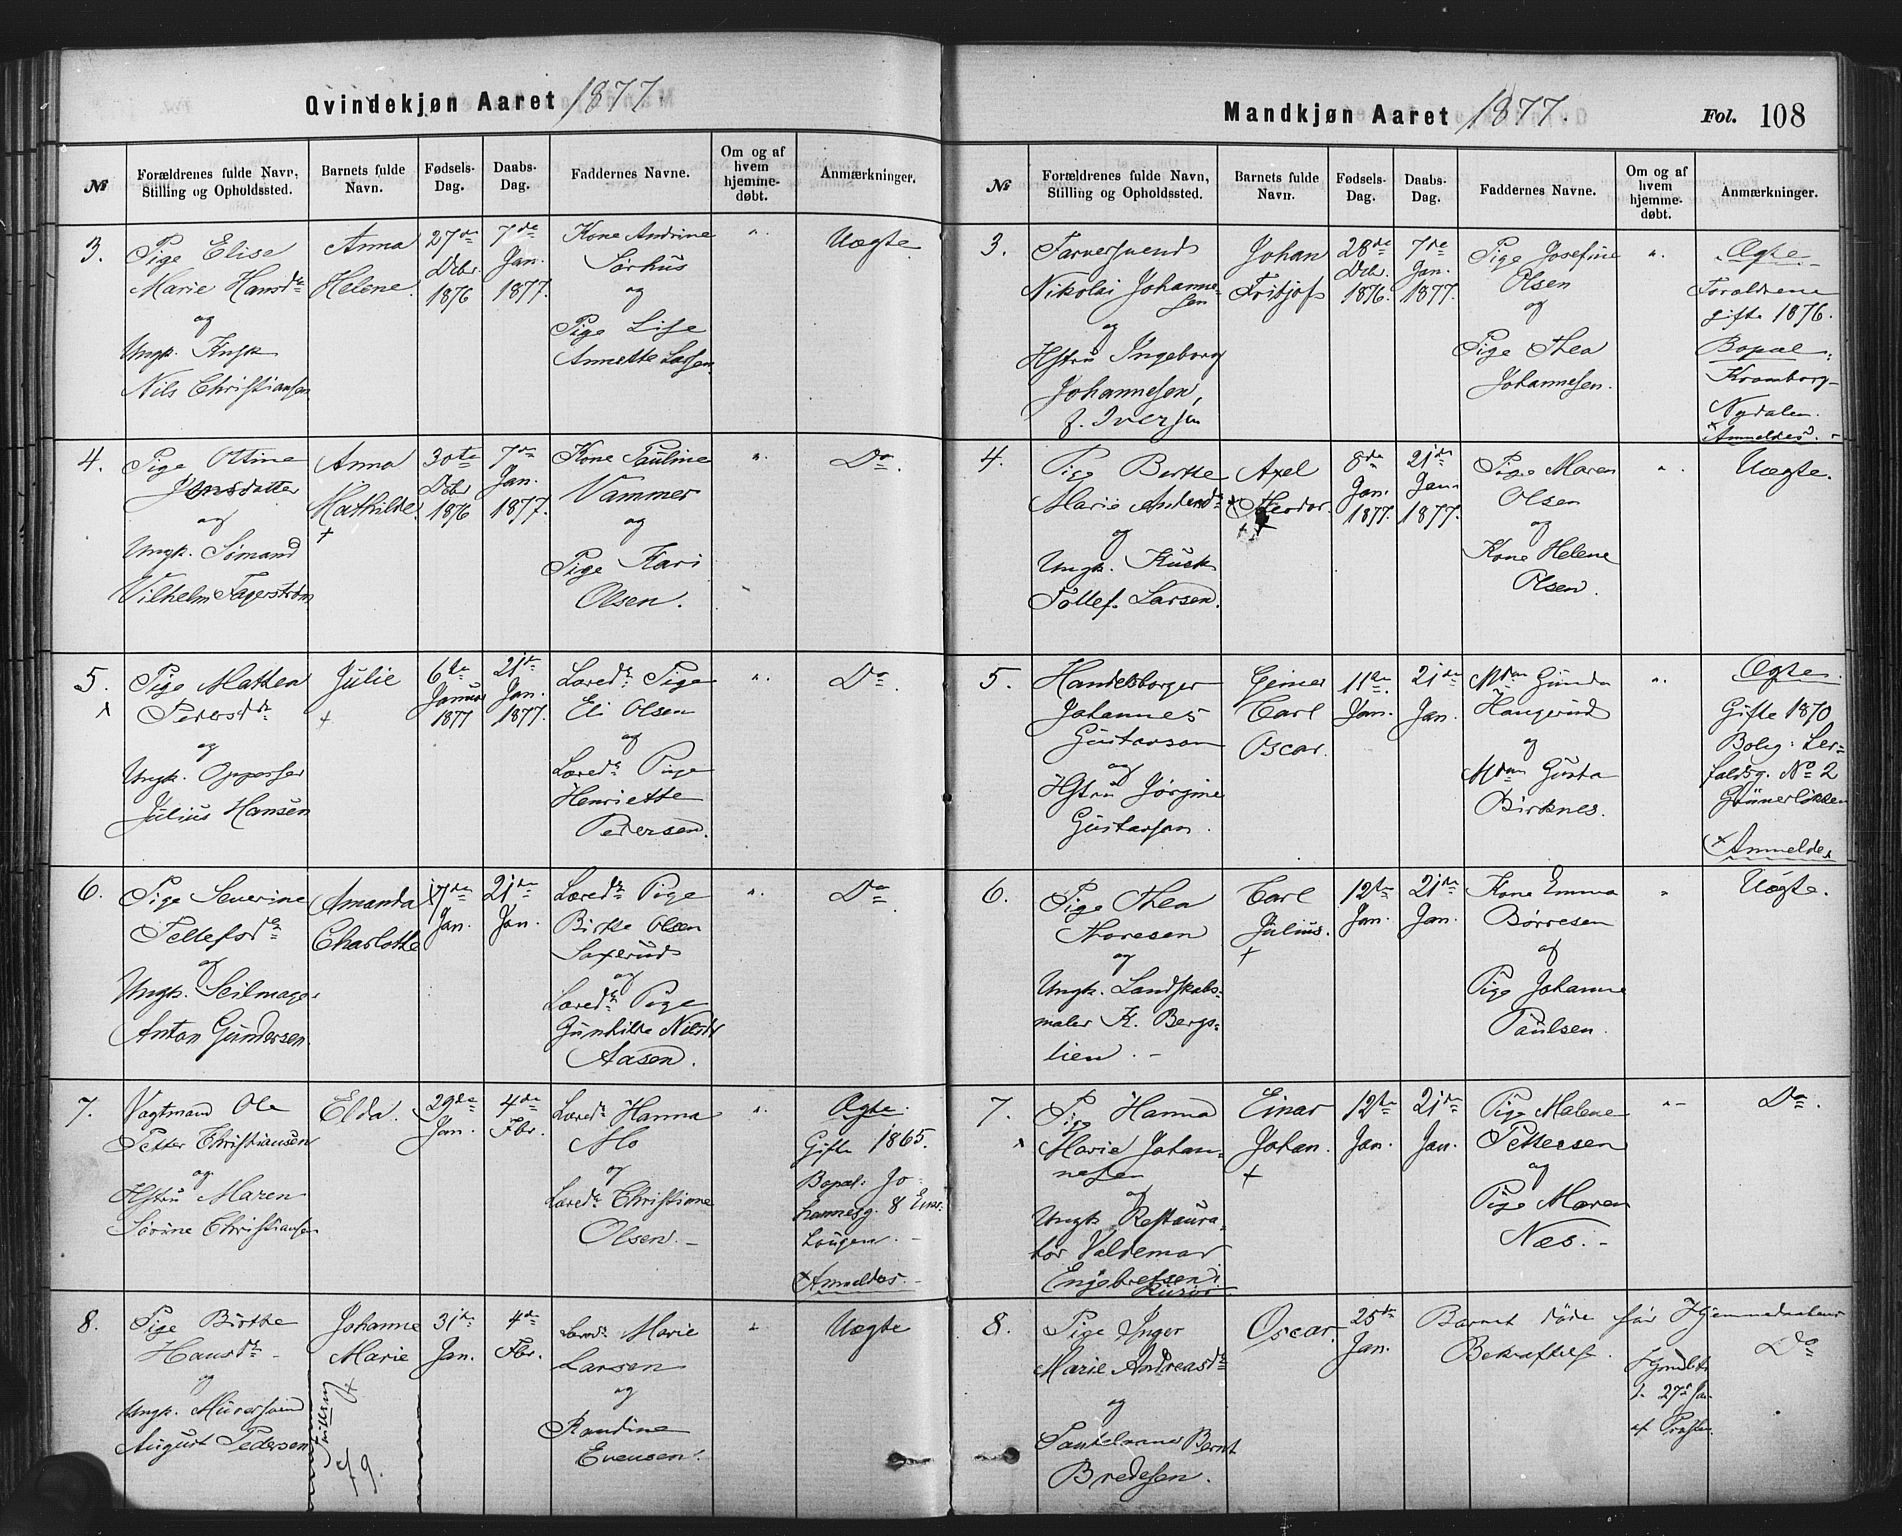 Qvindekjøn Aaret 1877.
№
Forældrenes fulde Navn,
Stilling og Opholdssted.
Barnets fulde
Navn.
Fødsels-
Dag.
Daabs-
Dag.
Faddernes Navne.
Om og af
hvem
hjemme-
døbt.
Anmærkninger.
3.
Pige Elise
Marie Hansdr
og
Ungk. Kusk
Nils Christiansen
Anna
Helene.
27de
Dcbr.
1876
7de
Jan.
1877.
Kone Andrine
Sørhus
og
Pige Lise
Annette Larsen
"
Uægte
4.
Pige Oltine
Jensdatter
og
Ungk. Sømand
Vilhelm Fagerstrøm
Anna
Mathilde.
+
30te
Dcbr
1876
7de
Jan.
1877.
Kone Pauline
Vammer
og
Pige Kari
Olsen.
"
Do.
5.
Pige Mathea
Pedersdr
og
Ungk. Opp
Julius Hansen
Julie
+
6te
Januar
1877
21de
Jan.
1877.
Løredr Pige
Eli Olsen
og
Løredr Pige
Henriette
Pedersen.
"
Do.
6.
Pige Severine
Tellefsdr
og
Ungk. Seilmager
Anton Gundersen.
Amanda
Charlotte
17de
Jan.
21de
Jan.
Løredr Pige
Birthe Olsen
Saxerud
og
Løredr Pige
Gunhilde Nilsdr
Aasen.
"
Do
7.
Vagtmand Ole
Petter Christiansen
og
Hstru Maren
Sørine Christiansen
Elda.
29de
Jan.
4de
Fbr.
Løredr Hanna
Mo
og
Løredr Christiane
Olsen.-
"
Ægte.
Gifte 1865.
Bopæl: Jo-
hannesg. 8 Ener-
Laugen.-
+Anmeldes.-
8.
Pige Birthe
Hansdr -
og
Ungk. Murersvend
August Pedersen
Johanne
Marie
+
79.
31te
Jan.
4de
Fbr.
Løredr Marie
Larsen
og
Randine
Evensen.
"
Uægte
Mandkjøn Aaret 1877.
Fol. 108
№
Forældrenes fulde Navn,
Stilling og Opholdssted.
Barnets fulde
Navn.
Fødsels-
Dag.
Daabs-
Dag.
Faddernes Navne.
Om og af
hvem
hjemme-
døbt.
Anmærkninger.
3.
Farversvend
Nikolai Johanne-
sen
og
Hstru Ingeborg
Johannesen,
f. Iversen
Johan
Fritjof
28de
Dcbr.
1876.
7de
Jan.
1877.
Pige Josefine
Olsen
og
Pige Thea
Johannesen.
"
Ægte.-
Forældrene
gifte 1876.
Bopæl:
Kromborg-
Nydalen.
+Anmeldes.-
4.
Pige Berthe
Marie Andersdr
og
Ungk. Kusk
Tollef. Larsen.
Axel
Theodor.
+
8de
Jan.
1877.
21de
Jan.
1877.
Pige Maren
Olsen
og
Kone Helene
Olsen.
"
Uægte.
5.
Handelsborger
Johannes
Gustavson
og
Hstru Jørgine
Gustavson.
Geiner
Carl
Oscar.
11te
Jan.
21de
Jan.
Mdm Gunda
Haugerud
og
Mdm Gusta
Birknes.
"
Ægte.
Gifte 1870
Bolig: Ler-
faldsg. No 2
Grünerløkken
+Anmeldes
6.
Pige Thea
Thoresen
og
Ungk. Landskabs-
maler K. Bergs-
lien. -
Carl
Julius.
+
12te
Jan.
21de
Jan.
Kone Emma
Børresen
og
Pige Johanne
Paulsen.
"
Uægte.
7.
Pige Hanna
Marie Johan-
nesen
og
Ungk Restaura-
tør Valdemar
Engebretsen i
Einar
Johan.
+
12te
Jan.
21de
Jan.
Pige Malene
Pettersen
og
Pige Maren
Næs.-
"-
Do.
8.
Pige Inger
Marie Andreasdr
og
Bernt
Bredesen.
Oscar.
25de
Jan.
Barnet døde før Hjemmedaabens
Bekræftelse.
Hjemdbt
d. 27de Jan
af Præsten.
Do